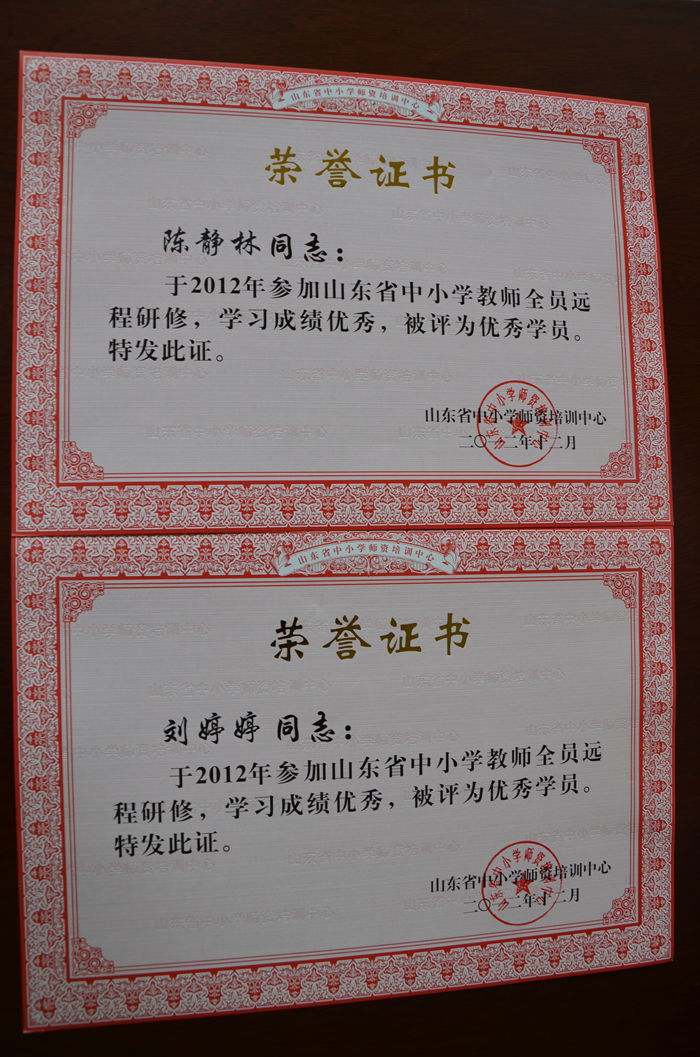 山东省中小学师资培训中心
荣誉证书
陈静林同志：
于2012年参加山东省中小学教师全员远
程研修，学习成绩优秀，被评为优秀学员。
特发此证。
山东省中小学师资培训中心
二〇一二年十二月
山东省中小学师资培训中心
荣誉证书
刘婷婷同志：
于2012年参加山东省中小学教师全员远
程研修，学习成绩优秀，被评为优秀学员。
特发此证。
山东省中小学师资培训中心
二〇一二年十二月